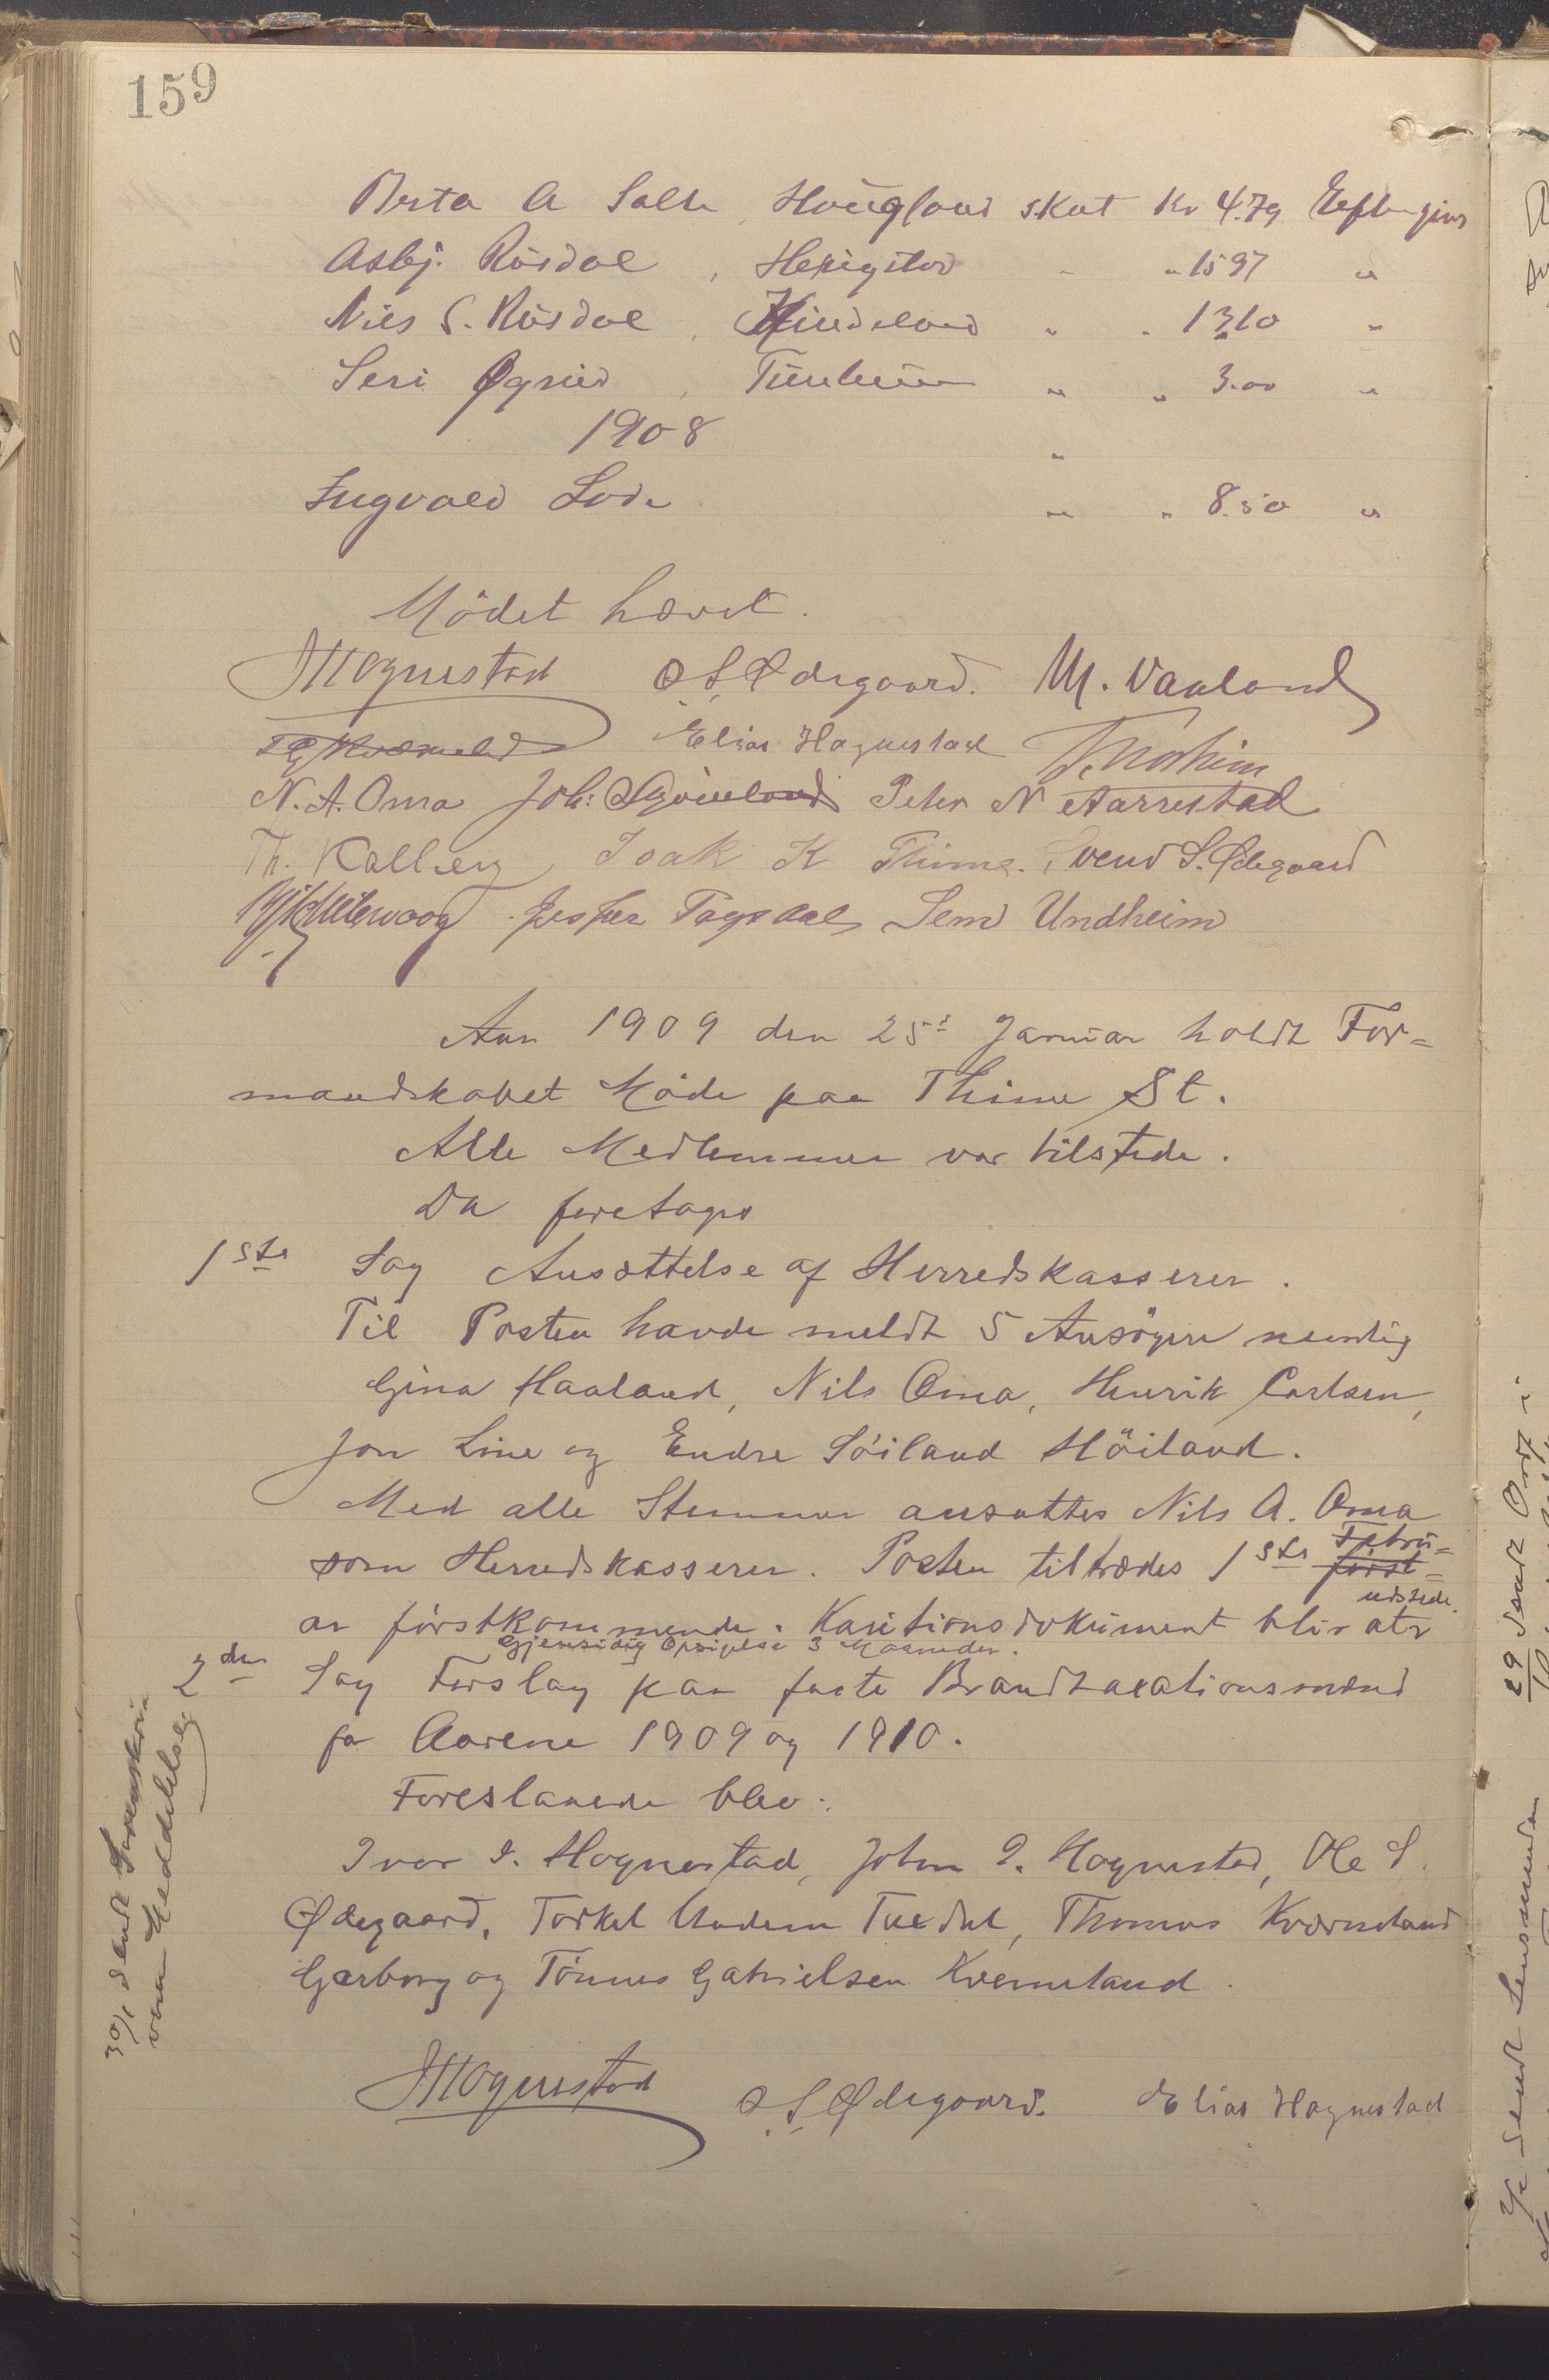 159
Berta A Salte, Haugland skat Kr 4.79 Eftergives
Asbj. Rosdal, Herigstad " " 15 97 "
Nils S. Rosdal, Kindeland " " 13,10 "
Seri Øgrei, Tunheim " " 3.00 "
1908 "
Ingvald Lode " " 8.50 "
Mödet hævet.
J Hognestad O S. Ødegaard. M. Vanland
Elias Hognestad
N. A. Oma Joh: Peter N Aarrestad
Th. Kalberg Isak K Thime. Svend S. Ødegaard
Jesper Tagedal Sem Undheim
Aar 1909 den 25de Januar holdt For=
mandskabet Möde paa Thime St.
Alle Medlemmer var tilstede.
Da foretages
1ste Sag Ansættelse af Herredskasserer.
Til Posten havde meldt 5 Ansögere nemlig
Gina Haaland, Nils Oma, Henrik Carlsen,
Jon Line og Endre Söiland Höiland.
Med alle Stemmer ansattes Nils A. Oma
som Herredskasserer. Posten tiltrædes 1ste först= Febru=
ar förstkommende. Kautionsdokument blir at udstede.
Gjensidig Opsigelse 3 Maaneder.
2den Sag Forslag paa faste Brandtaxationsmænd
for Aarene 1909 og 1910.
Foreslaaede blev:
Ivar I. Hognestad, John I. Hognestad, Ole S.
Ødegaard, Torkel Undem Tuedal, Thomas Kværneland
Garborg og Tönnes Gabrielsen Kverneland.
J Hognestad O S. Ødegaard. Elias Hognestad
30/1 sendt Sorenskriv
veren Meddelelse
29 sendt
sendt Lensmanden